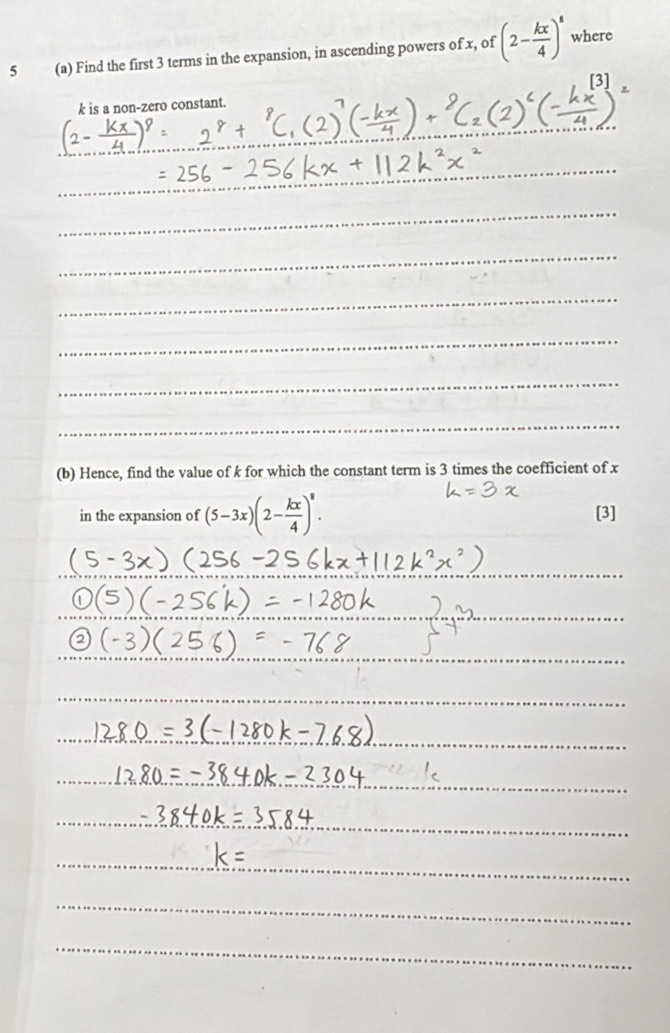 5 (a) Find the first 3 terms in the expansion, in ascending powers of x, of (2 − kx/4)⁸ where
k is a non-zero constant. [3]
(2 - kx/4)⁸ = 2⁸ + ⁸C₁(2)⁷(-kx/4) + ⁸C₂(2)⁶(-kx/4)²
= 256 - 256kx + 112k²x²
(b) Hence, find the value of k for which the constant term is 3 times the coefficient of x
k = 3x
in the expansion of (5−3x)(2 − kx/4)⁸. [3]
(5 - 3x) (256 - 256kx + 112k²x²)
① (5)(-256k) = -1280k
② (-3)(256) = -768
1280 = 3(-1280k - 768)
1280 = -3840k - 2304
-3840k = 3584
k =